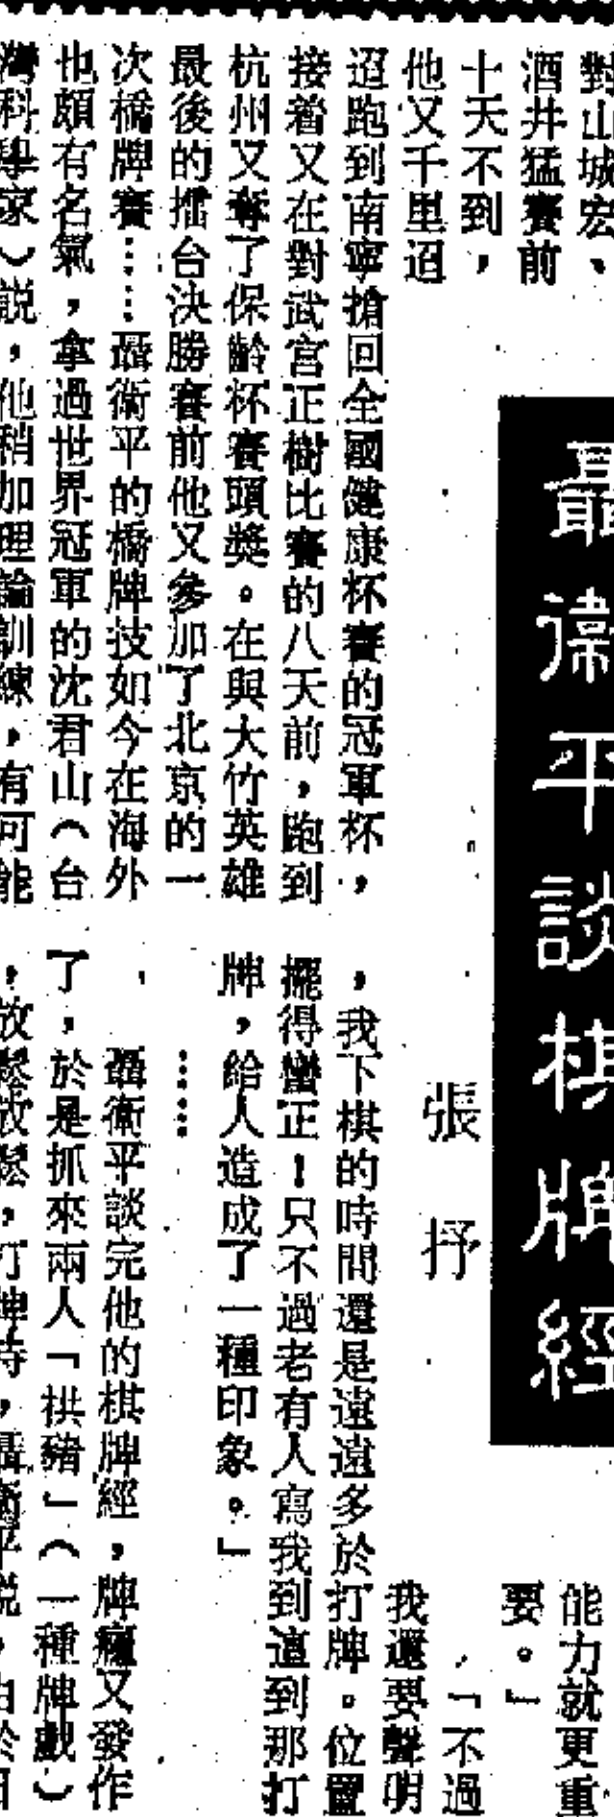 聶衛平談棋牌經
張抒
對山城宏、
酒井猛賽前
十天不到，
他又千里迢
迢跑到南寧搶回全國健康杯賽的冠軍杯，
接着又在對武宮正樹比賽的八天前，跑到
杭州又奪了保齡杯賽頭獎。在與大竹英雄
最後的擂台決勝賽前他又參加了北京的一
次橋牌賽……聶衛平的橋牌技如今在海外
也頗有名氣，拿過世界冠軍的沈君山（台
灣科學家）説，他稍加理論訓練，有可能
能力就更重
要。」
「不過
我還要聲明
，我下棋的時間還是遠遠多於打牌。位置
擺得蠻正！只不過老有人寫我到這到那打
牌，給人造成了一種印象。」
……
聶衛平談完他的棋牌經，牌癮又發作
了，於是抓來兩人「拱豬」（一種牌戲）
，放鬆放鬆，打牌時，聶衛平説，由於日